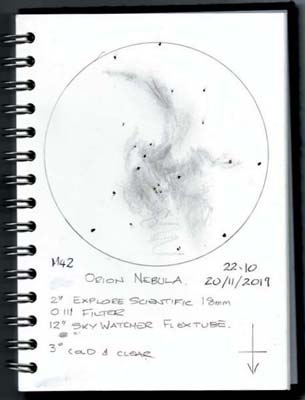 M42
22.10
ORION NEBULA.
20/11/2019
2" EXPLORE SCIENTIFIC 18mm
O III FILTER
12" SKYWATCHER FLEXTUBE.
3° COLD & CLEAR